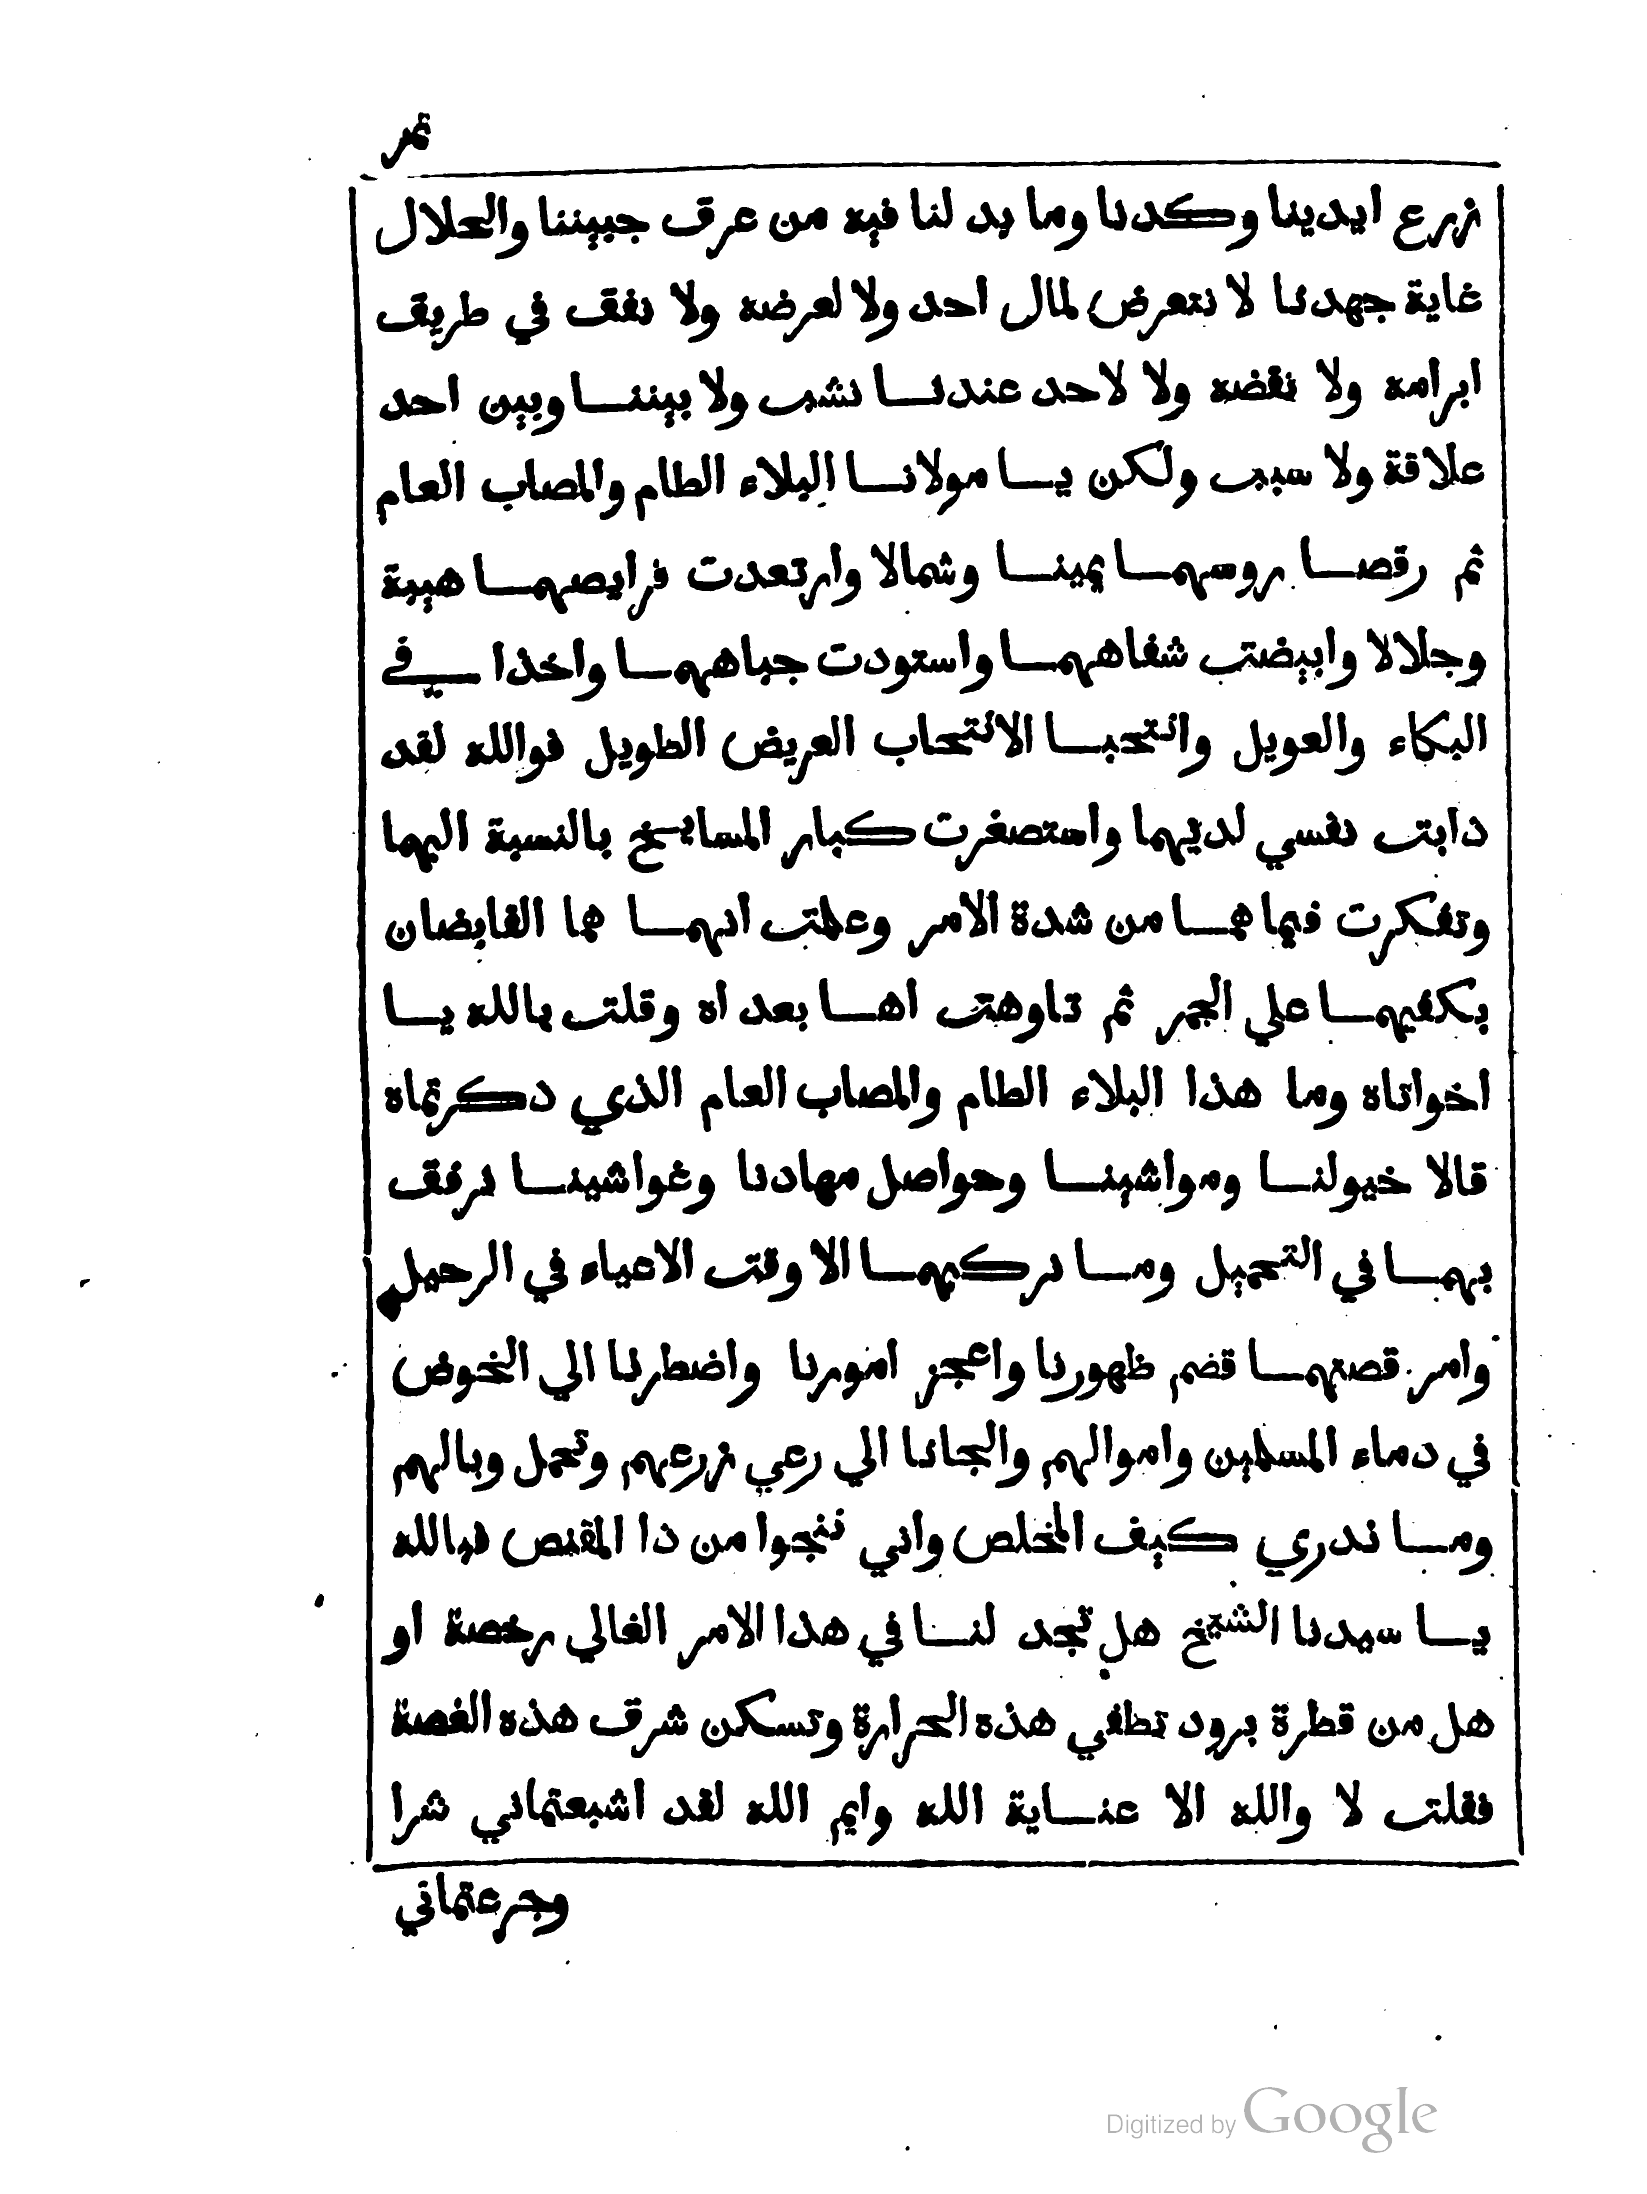 تمر
زرع ايدينا وكدنا وما بد لنا فيه من عرق جبيننا والحلال
غاية جهدنا لا نتعرض لمال احد ولا لعرضه ولا نفق في طريق
ابرامه ولا نقضه ولا لاحد عندنا نشب ولا بيننا وبين احد
علاقة ولا سبب ولكن يا مولانا البلاء الطام والمصاب العام
ثم رقصا روسهما يمينا وشمالا وارتعدت فرايصهما هيبة
وجلالا وابيضت شفاههما واستودت جباههما واخذا في
البكاء والعويل وانتحبا الانتحاب العريض الطويل فوالله لقد
دابت نفسي لديهما واستصغرت كبار المسايخ بالنسبة اليهما
وتفكرت فيما هما من شدة الامر وعلمت انهما هما القابضان
بكفيهما علي الجمر ثم تاوهت اها بعد اه وقلت بالله يا
اخواتاه وما هذا البلاء الطام والمصاب العام الذي دكرتماه
قالا خيولنا ومواشينا وحواصل مهادنا وغواشينا نرفق
بهما في التحميل وما نركبهما الا وقت الاعياء في الرحيل
وامر قصتهما قضم ظهورنا واعجز امورنا واضطرنا الي الخوض
في دماء المسلمين واموالهم والجانا الي رعي زرعهم وتحمل وبالهم
وما ندري كيف المخلص واني ننجوا من ذا المقنص فبالله
يا سيدنا الشيخ هل تجد لنا في هذا الامر الغالي رخصة او
هل من قطرة برود تطفي هذه الحرارة وتسكن شرق هذه الغصة
فقلت لا والله الا عناية الله وايم الله لقد اشبعتماني شرا
وجرعتماني
Digitized by Google